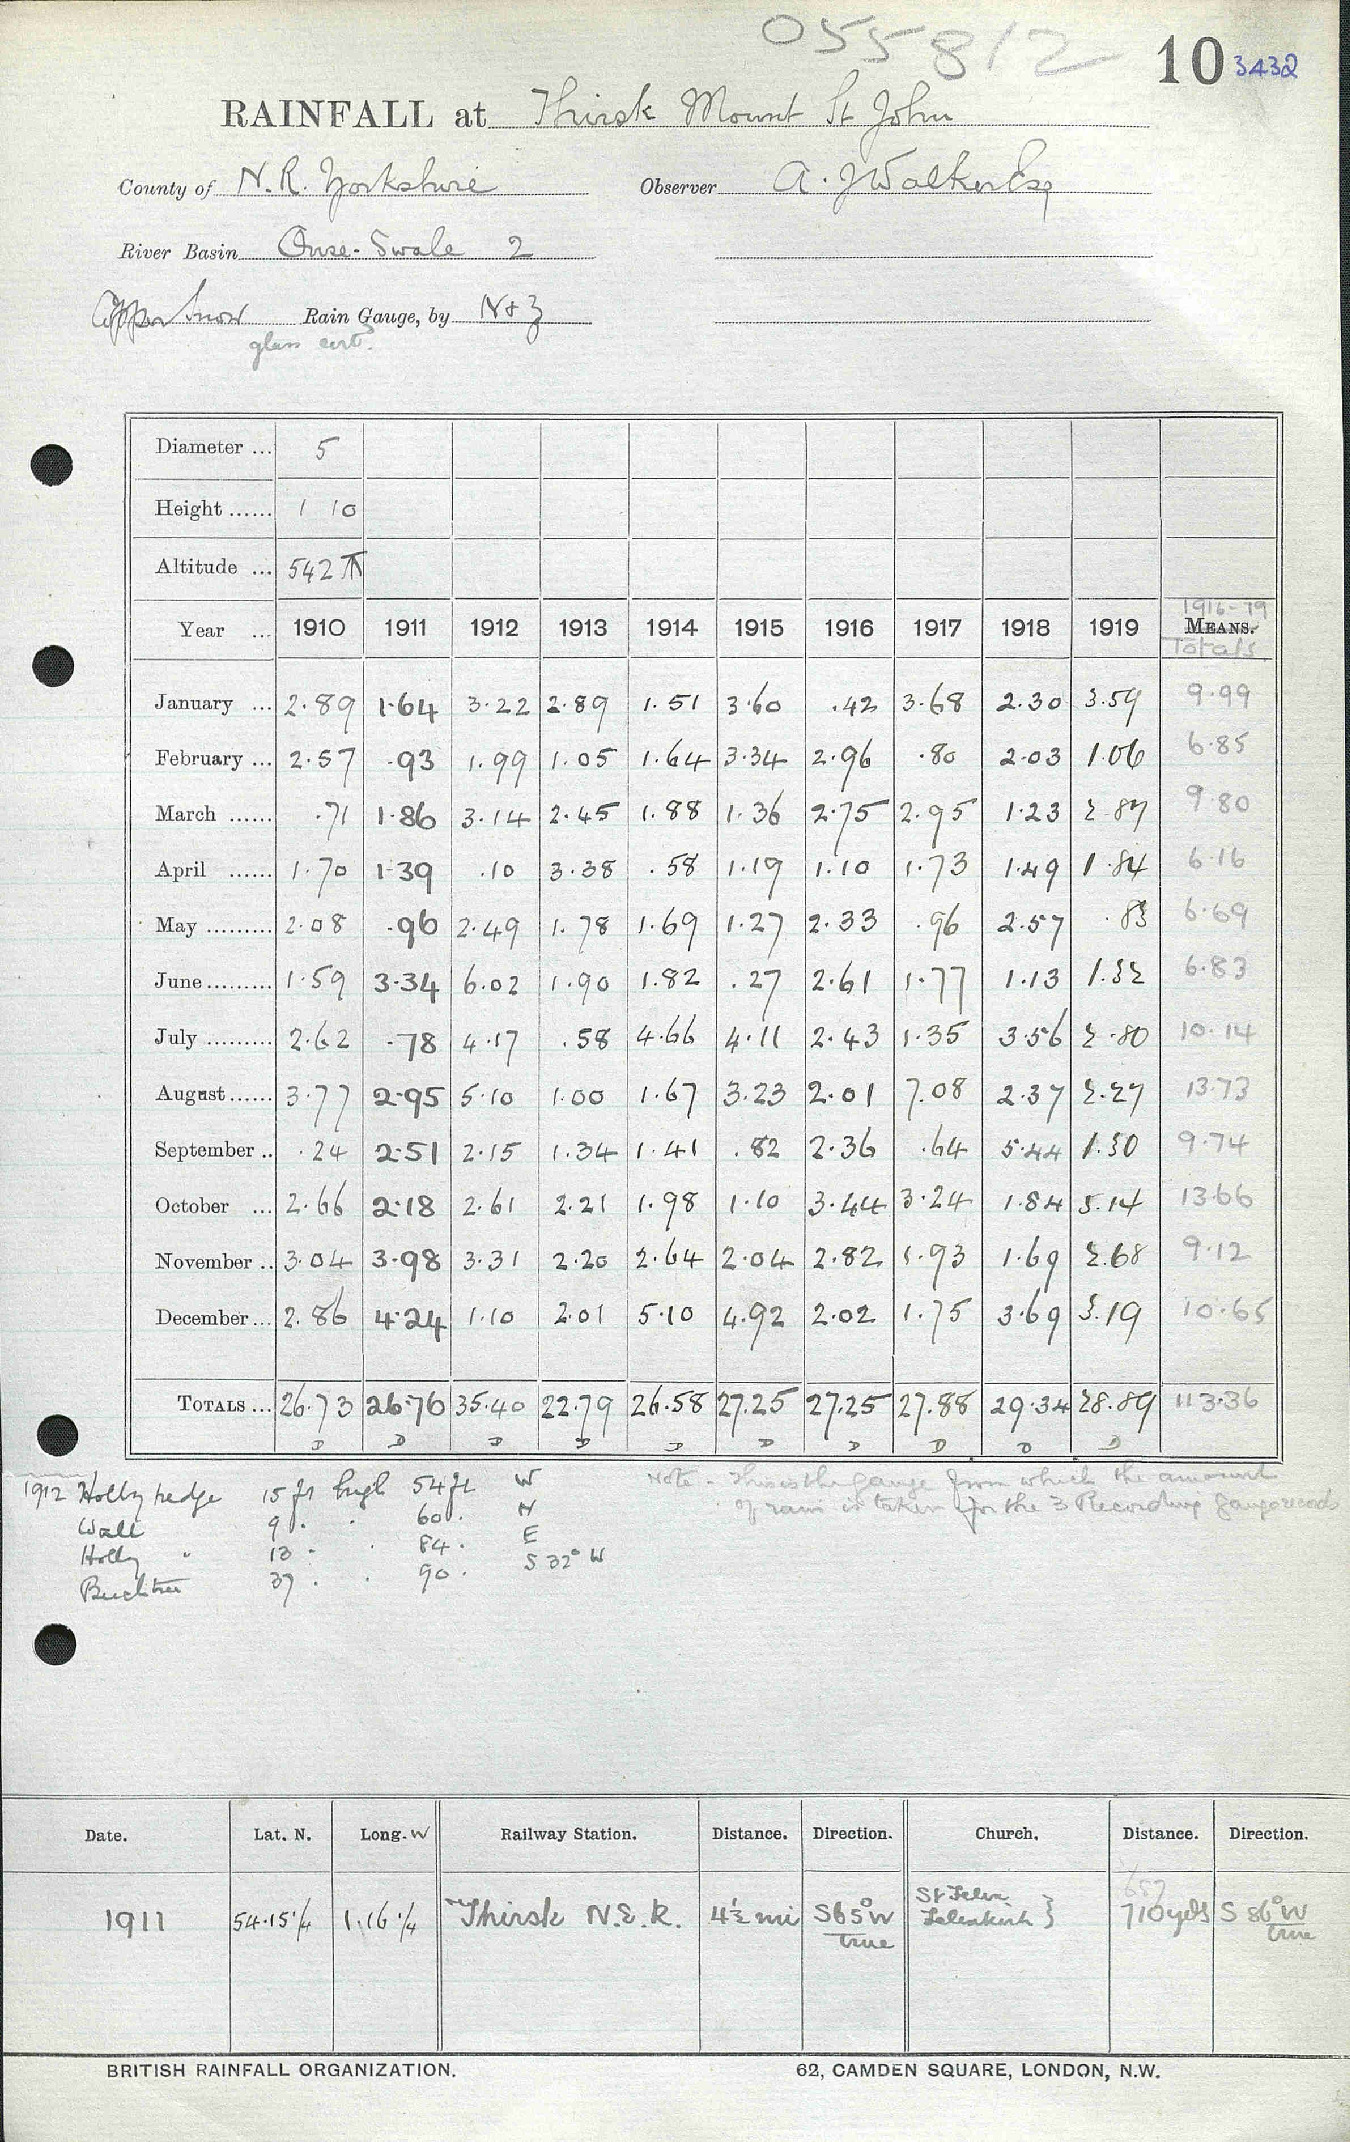 055812
10 3432
RAINFALL at Thirsk Mount St John
County of N.R. Yorkshire Observer A. J Walker Esq
River Basin Ouse-Swale 2
Rain Gauge, by N & Z
glass cert.
Diameter ... 5
Height ...... 1 10
Altitude ... 542
1916-19
Year ... 1910 1911 1912 1913 1914 1915 1916 1917 1918 1919 MEANS.
Totals
January ... 2.89 1.64 3.22 2.89 1.51 3.60 .42 3.68 2.30 3.59 9.99
February ... 2.57 .93 1.99 1.05 1.64 3.34 2.96 .80 2.03 1.06 6.85
March ...... .71 1.86 3.14 2.45 1.88 1.36 2.75 2.95 1.23 2.87 9.80
April ...... 1.70 1.39 .10 3.38 .58 1.19 1.10 1.73 1.49 1.84 6.16
May ......... 2.08 .96 2.49 1.78 1.69 1.27 2.33 .96 2.57 .83 6.69
June ......... 1.59 3.34 6.02 1.90 1.82 .27 2.61 1.77 1.13 1.32 6.83
July ......... 2.62 .78 4.17 .58 4.66 4.11 2.43 1.35 3.56 2.80 10.14
August ...... 3.77 2.95 5.10 1.00 1.67 3.23 2.01 7.08 2.37 2.27 13.73
September .. .24 2.51 2.15 1.34 1.41 .82 2.36 .64 5.44 1.30 9.74
October ... 2.66 2.18 2.61 2.21 1.98 1.10 3.44 3.24 1.84 5.14 13.66
November .. 3.04 3.98 3.31 2.20 2.64 2.04 2.82 1.93 1.69 2.68 9.12
December ... 2.86 4.24 1.10 2.01 5.10 4.92 2.02 1.75 3.69 3.19 10.65
TOTALS ... 26.73 26.76 35.40 22.79 26.58 27.25 27.25 27.88 29.34 28.89 113.36
D D D D D D D D D D
1912 Holly hedge 15 ft high 54 ft W
Wall 9 " " 60 " N
Holly " 13 " 84 " E
Beechtree 37 " " 90 " S 32° W
Note - This is the gauge from which the amount
of rain is taken for the 3 Recording gauge records
Date. Lat. N. Long. W Railway Station. Distance. Direction. Church. Distance. Direction.
1911 54.15 1/4 1.16 1/4 Thirsk N.E.R. 4 1/2 mi S65°W true St Felix Felixkirk } 657 710 yds S 86° W true
BRITISH RAINFALL ORGANIZATION. 62, CAMDEN SQUARE, LONDON, N.W.